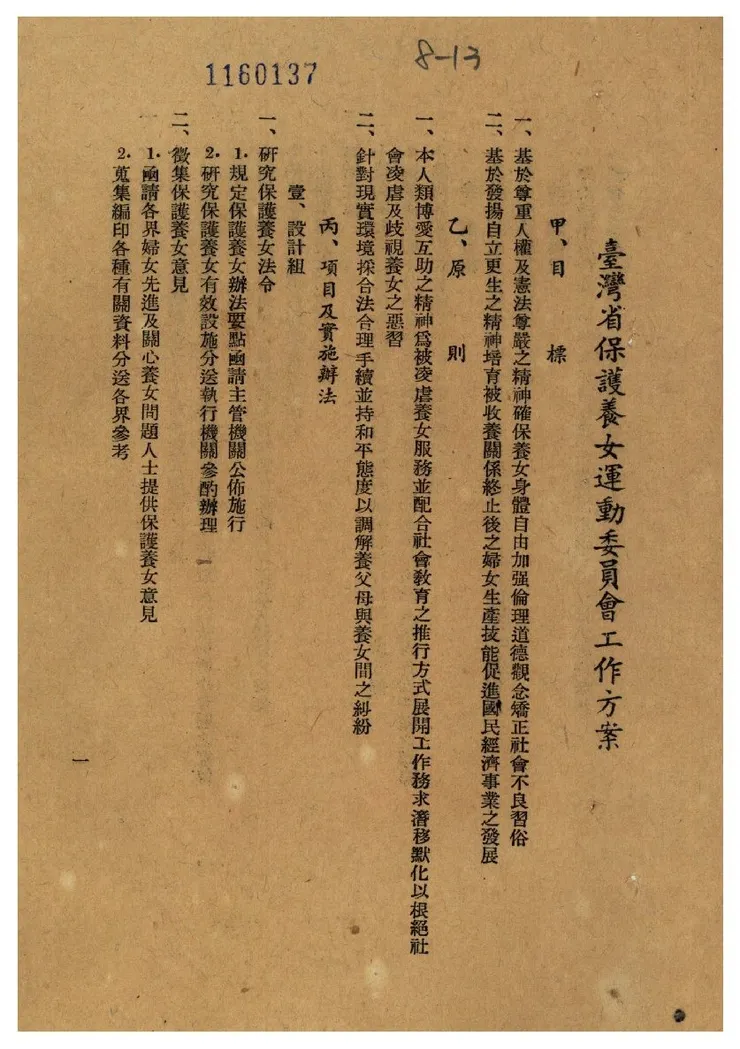 8-13
1160137
臺灣省保護養女運動委員會工作方案
甲、目標
一、基於尊重人權及憲法尊嚴之精神確保養女身體自由加强倫理道德觀念矯正社會不良習俗
二、基於發揚自立更生之精神培育被收養關係終止後之婦女生產技能促進國民經濟事業之發展
乙、原則
一、本人類博愛互助之精神爲被凌虐養女服務並配合社會敎育之推行方式展開工作務求潛移默化以根絕社
會凌虐及歧視養女之惡習
二、針對現實環境採合法合理手續並持和平態度以調解養父母與養女間之糾紛
丙、項目及實施辦法
壹、設計組
一、硏究保護養女法令
1.規定保護養女辦法要點函請主管機關公佈施行
2.硏究保護養女有效設施分送執行機關參酌辦理
二、徵集保護養女意見
1.函請各界婦女先進及關心養女問題人士提供保護養女意見
2.蒐集編印各種有關資料分送各界參考
一